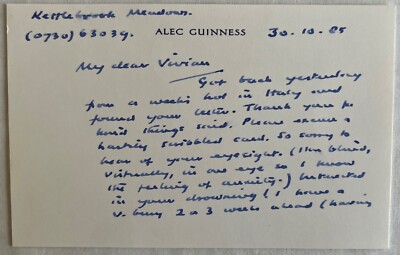 Kettlebrook Meadows.
(0730) 63039. ALEC GUINNESS 30.10.85
My dear Vivian
Got back yesterday
from a weeks hol in Italy and
found your letter. Thank you for
kind things said. Please excuse a
hastily scribbled card. So sorry to
hear of your eyesight. (I'm blind,
virtually, in one eye so I know
the feeling of anxiety.)
in your drowning! I have a
v. busy 2 or 3 weeks ahead (having